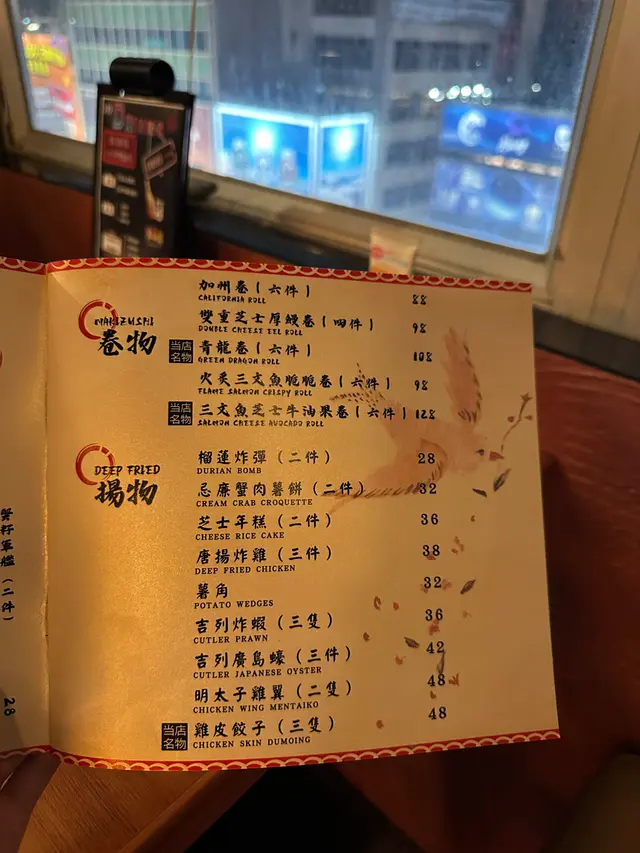 MAKIZUSHI
卷物
加州卷(六件) 88
CALIFORNIA ROLL
雙重芝士厚鰻卷(四件) 98
DOUBLE CHEESE EEL ROLL
当店名物
青龍卷(六件) 108
GREEN DRAGON ROLL
火炙三文魚脆脆卷(六件) 98
FLAME SALMON CRISPY ROLL
当店名物
三文魚芝士牛油果卷(六件) 128
SALMON CHEESE AVOCADO ROLL
DEEP FRIED
揚物
榴蓮炸彈(二件) 28
DURIAN BOMB
忌廉蟹肉薯餅(二件) 32
CREAM CRAB CROQUETTE
芝士年糕(二件) 36
CHEESE RICE CAKE
唐揚炸雞(三件) 38
DEEP FRIED CHICKEN
薯角 32
POTATO WEDGES
吉列炸蝦(三隻) 36
CUTLER PRAWN
吉列廣島蠔(三件) 42
CUTLER JAPANESE OYSTER
明太子雞翼(二隻) 48
CHICKEN WING MENTAIKO
当店名物
雞皮餃子(三隻) 48
CHICKEN SKIN DUMOING
軍艦(二件) 28